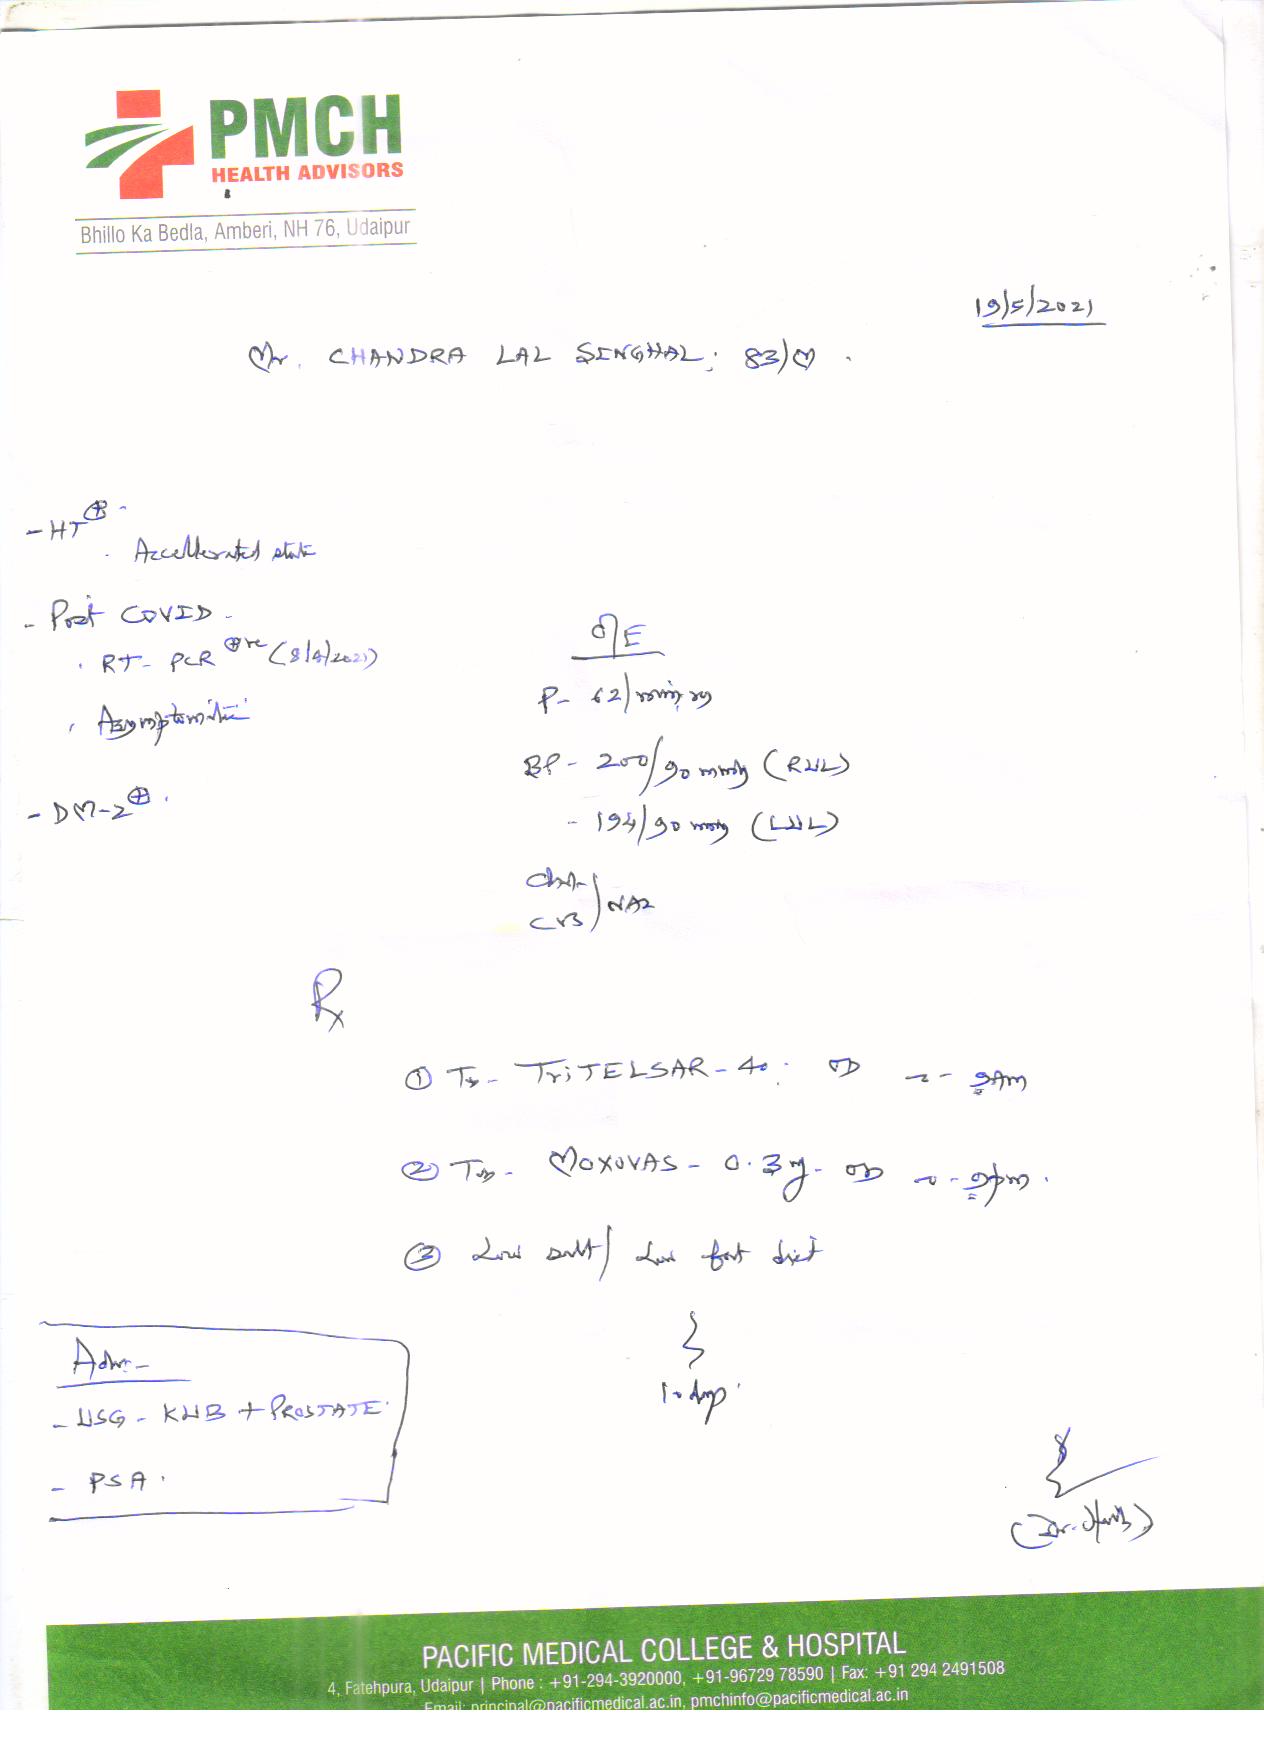 PMCH
HEALTH ADVISORS
Bhillo Ka Bedla, Amberi, NH 76, Udaipur
19/5/2021
Mr. CHANDRA LAL SINGHAL; 83/M.
- HT ⊕ -
. Accellerated state
- Post COVID -
. RT- PCR ⊕ve (8/4/2021)
. Asymptomatic
- DM-2 ⊕ .
O/E
P- 62/min,
BP- 200/90 mmHg (RUL)
- 194/90 mmHg (LUL)
Chest
CVS / NAD
Rx
① Tab- TriTELSAR-40 OD - 9AM
② Tab- MOXOVAS- 0.3mg- OD - 9pm.
③ Low salt/ Low fat diet
10 days
Adv-
- USG- KUB + PROSTATE
- PSA.
(Dr.
PACIFIC MEDICAL COLLEGE & HOSPITAL
4, Fatehpura, Udaipur | Phone : +91-294-3920000, +91-96729 78590 | Fax: +91 294 2491508
Email: principal@pacificmedical.ac.in, pmchinfo@pacificmedical.ac.in